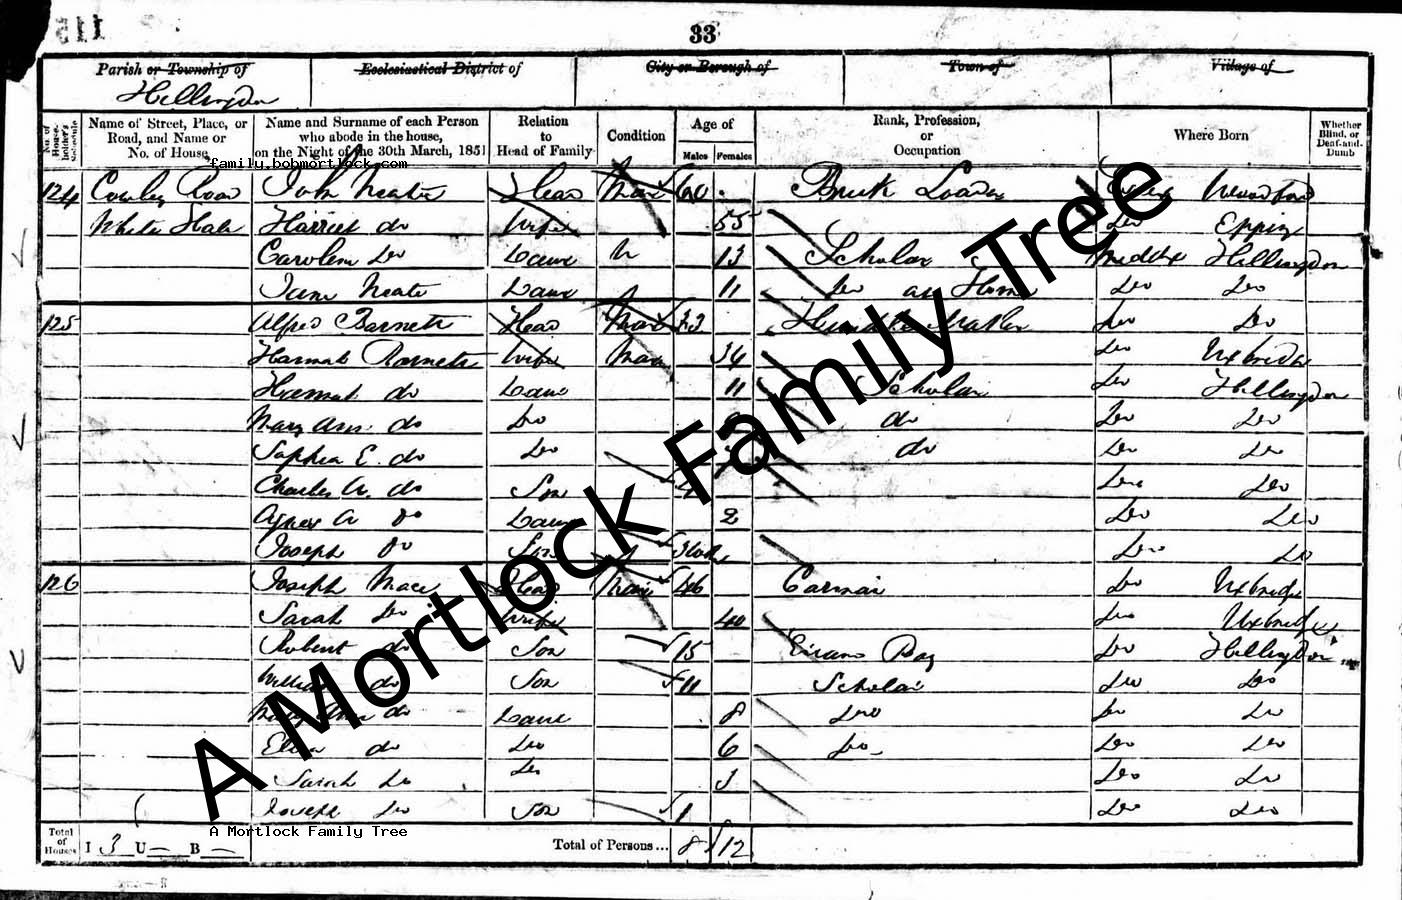 115
33
Parish or Township of
Ecclesiastical District of
City or Borough of
Town of
Village of
Hillingdon
No. of House-holder's Schedule
Name of Street, Place, or Road, and Name or No. of House
Name and Surname of each Person who abode in the house, on the Night of the 30th March, 1851
Relation to Head of Family
Condition
Age of
Males
Females
Rank, Profession, or Occupation
Where Born
Whether Blind, or Deaf-and-Dumb
family.bobmortlock.com
124 Cowley Road John Neate Head Mar 60 Brick Loader Woodford
White Hall Harriet do Wife 55 do Epping
Caroline do Daur U 13 Scholar Middx Hillingdon
Jane Neate Daur 11 do at Home do do
125 Alfred Barnett Head Mar 33 Maker do do
Hannah Barnett Wife Mar 34 do Uxbridge
Hannah do Daur 11 Scholar do Hillingdon
Mary Ann do do do do do
Sophia E. do do do do do
Charles A. do Son 4 do do
Agnes A do Daur 2 do do
Joseph do Son do do
126 Joseph Mace Head Mar 46 Carman do Uxbridge
Sarah do Wife 40 do Uxbridge
Robert do Son 15 Boy do Hillingdon
William do Son 11 Scholar do do
Mary Ann do Daur 8 do do do
Eliza do do 6 do do do
Sarah do do 3 do do
Joseph do Son 1 do do
A Mortlock Family Tree
Total of Houses I 3 U — B —
Total of Persons... 8 12
A Mortlock Family Tree